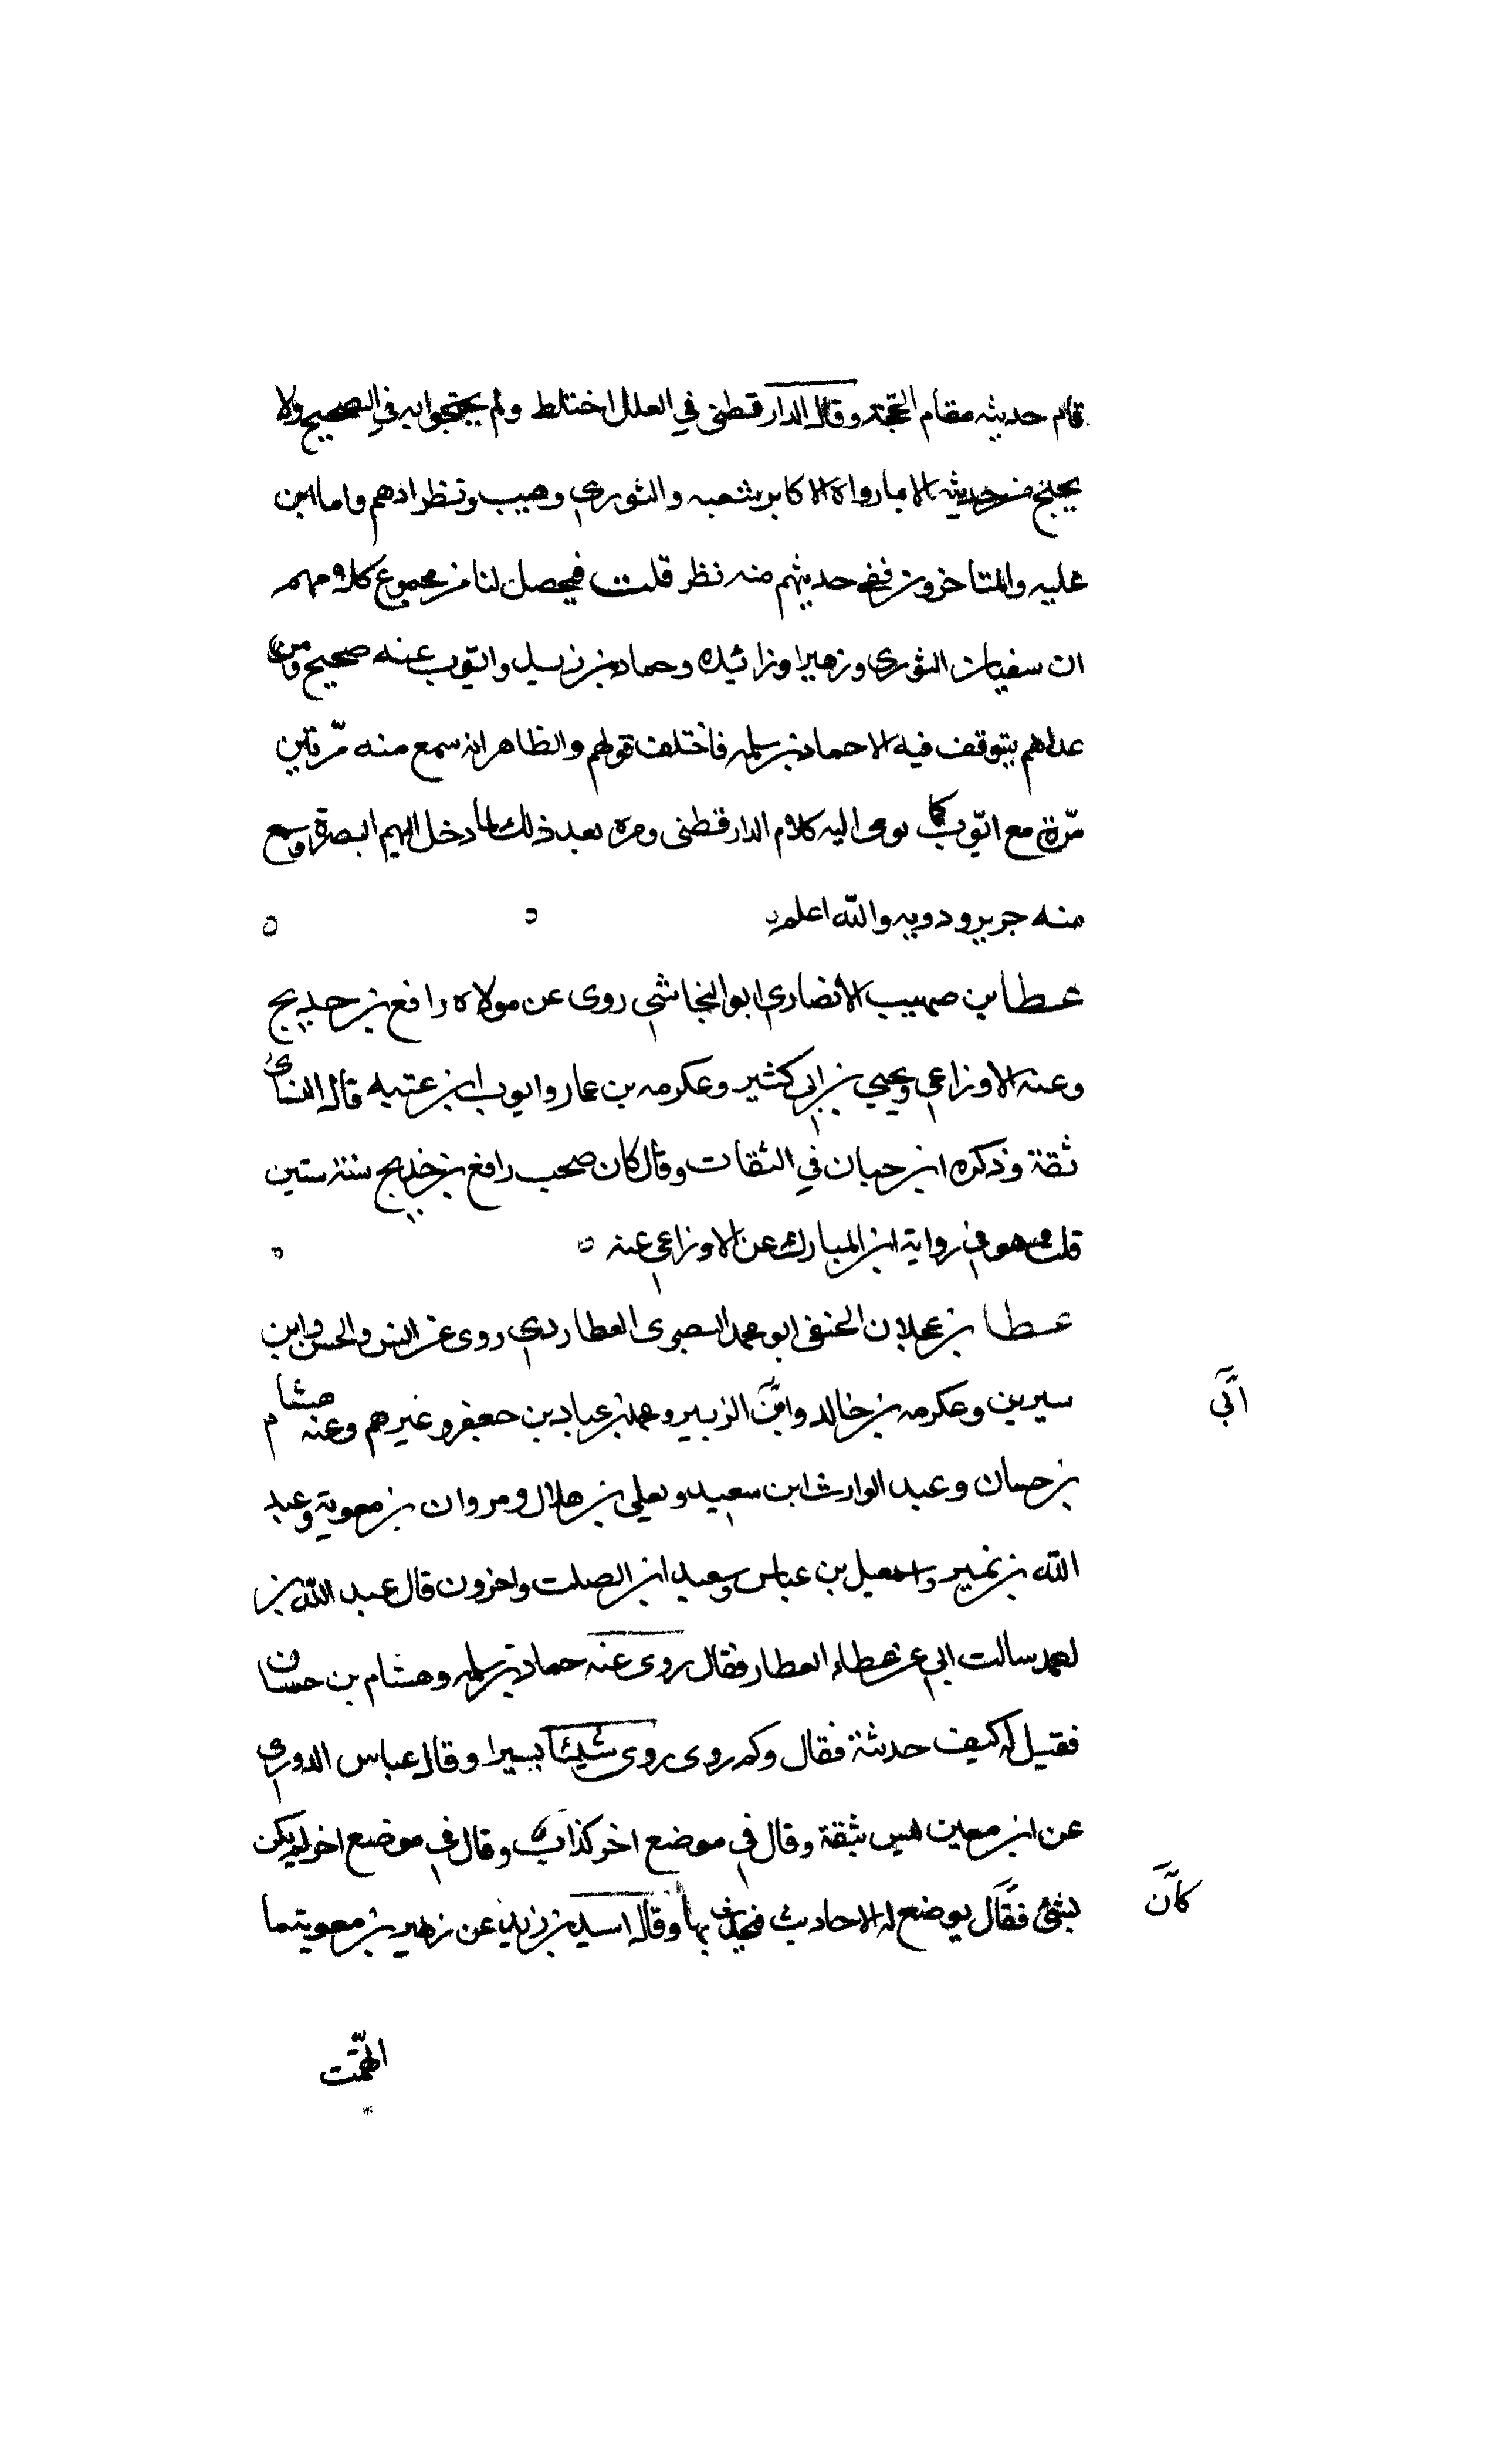 قام حديثه مقام الحجة وقال الدارقطني في العلل اختلط ولم يحتجوا به في الصحيح ولا
يحتج من حديثه الا بما رواه الاكابر شعبه والثوري وهيب ونظراءهم واما ابن
عليه والمتاخرون ففي حديثهم منه نظر قلت فيحصل لنا من مجموع كلامهم
ان سفيان الثوري وزهيرا وزائيده وحماد بن زيد وايّوب عنه صحيح ومن
عداهم يتوقف فيه الا حماد بن سلمه فاختلف قولهم والظاهر انه سمع منه مرّتين
مرّة مع ايّوب كما يومى اليه كلام الدارقطنى ومره بعد ذلك لما دخل اليهم البصرة وسمع
منه جرير ودويه والله اعلم
عطا بن صهيب الانصاري ابو النجاشي روى عن مولاه رافع بن حديج
وعنه الاوزاعي ويحيي بن ابي كثير وعكرمه بن عمار وايوب ابن عتبه قال النسائى
ثقة وذكره ابن حبان في الثقات وقال كان صحب رافع بن خديج ستة ستين
قلت هو في رواية ابن المبارك عن الاوزاعي عنه
عطا بن عجلان الحنفى ابو محمد البصرى العطاردي روى عن انس والحسن وابن
سيرين وعكرمه بن خالد وابن الزبير ومحمد بن عباد بن جعفر وغيرهم وعنه هشام
ابي
بن حسان وعبد الوارث ابن سعيد ويعلي بن هلال ومروان بن معوية وعبد
الله بن نمير واسمعيل بن عباس وسعيد ابن الصلت واخرون قال عبد الله بن
احمد سالت ابي عن عطاء العطار فقال روى عنه حماد بن سلمه وهشام بن حسان
فقيل له كيف حديثة فقال وكم روى روى شيئا يسيرا وقال عباس الدوري
عن ابن معين ليس بثقة وقال في موضع اخر كذاب وقال في موضع اخر لم يكن
بشئ فقال يوضع له الاحاديث فيحدث بها وقال اسيد بن زيد عن زهير بن معوية ما
كان
اتهمت